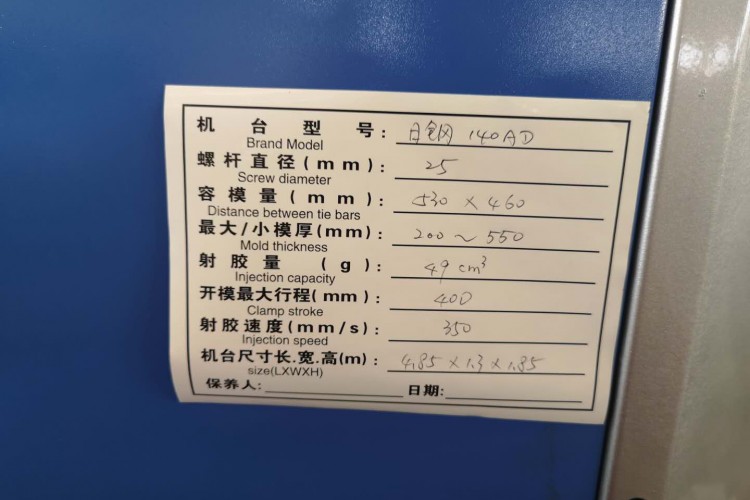 机台型号: 日钢 140AD
Brand Model
螺杆直径(mm): 25
Screw diameter
容模量(mm): 530 × 460
Distance between tie bars
最大/小模厚(mm): 200 ~ 550
Mold thickness
射胶量(g): 49 cm³
Injection capacity
开模最大行程(mm): 400
Clamp stroke
射胶速度(mm/s): 350
Injection speed
机台尺寸长.宽.高(m): 4.85 × 1.3 × 1.85
size(LXWXH)
保养人: 日期: